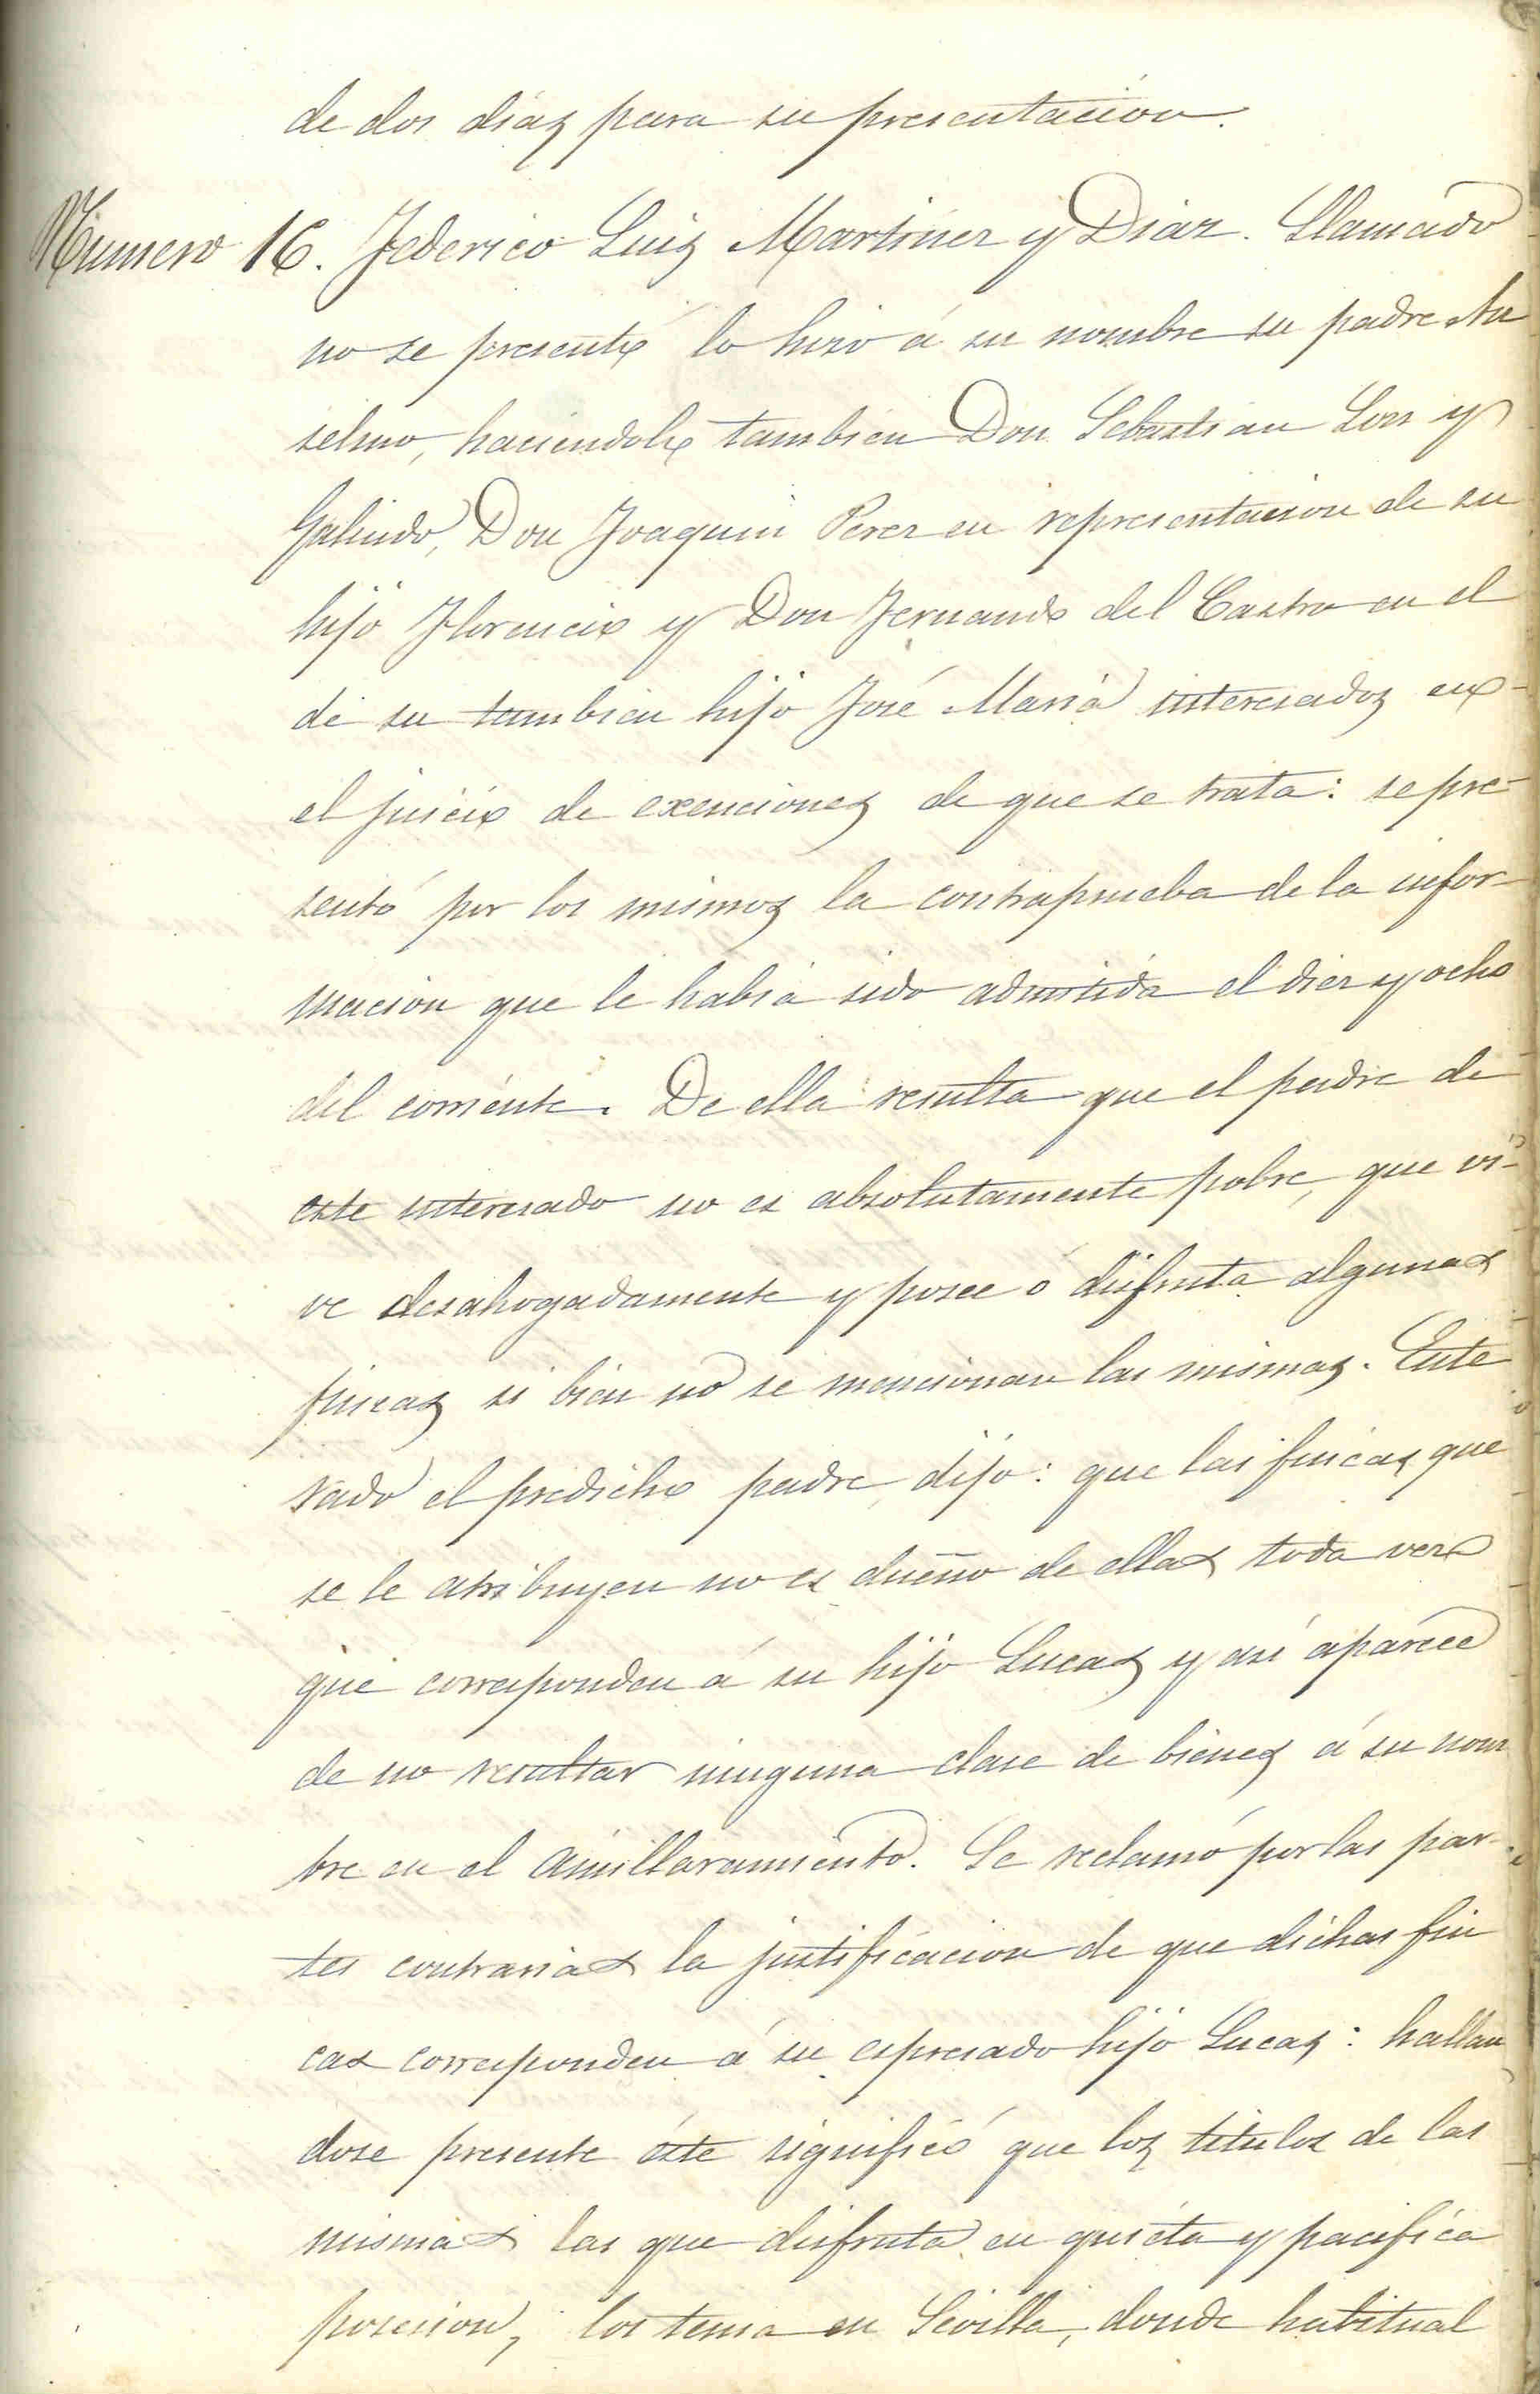 de dos dias para su presentacion.
Número 16. Federico Luis Martinez y Diaz. Llamado
no se presentó lo hizo á su nombre su padre An
selmo, haciendolo tambien Don Sebastian Lon y
Galindo, Don Joaquin Perez en representacion de su
hijo Florencio y Don Fernando del Castro en el
de su tambien hijo José Maria interesados en
el juicio de exenciones de que se trata: se pre-
sentó por los mismos la contraprueba de la infor-
macion que le habia sido admitida el diez y ocho
del corriente. De ella resulta que el padre de
este interesado no es absolutamente pobre, que vi-
ve desahogadamente y posee ó disfruta algunas
fincas si bien no se mencionan las mismas. Ente
rado el predicho padre, dijo: que las fincas que
se le atribuyen no es dueño de ellas toda vez
que corresponden á su hijo Lucas y asi aparece
de no resultar ninguna clase de bienes á su nom
bre en el amillaramiento. Se reclamó por las par-
tes contrarias la justificacion de que dichas fin
cas corresponden á su espresado hijo Lucas: hallan
dose presente éste significó que los titulos de las
mismas las que disfruta en quieta y pacifica
posesion, los tenia en Sevilla, donde habitual